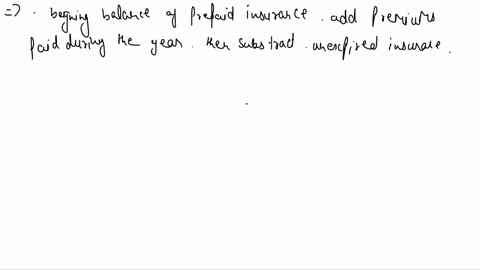 => . begning balance of prepaid insurance . add Premiums
paid during the year . then substract . unexpired insurance .